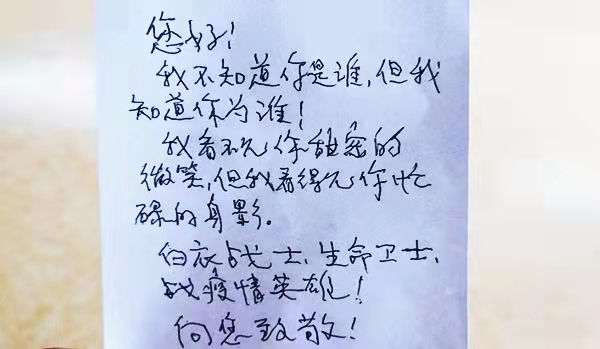 您好!
我不知道你是谁,但我
知道你为谁!
我看不见你甜密的
微笑,但我看得见你忙
碌的身影。
白衣战士、生命卫士、
战疫情英雄!
向您致敬!